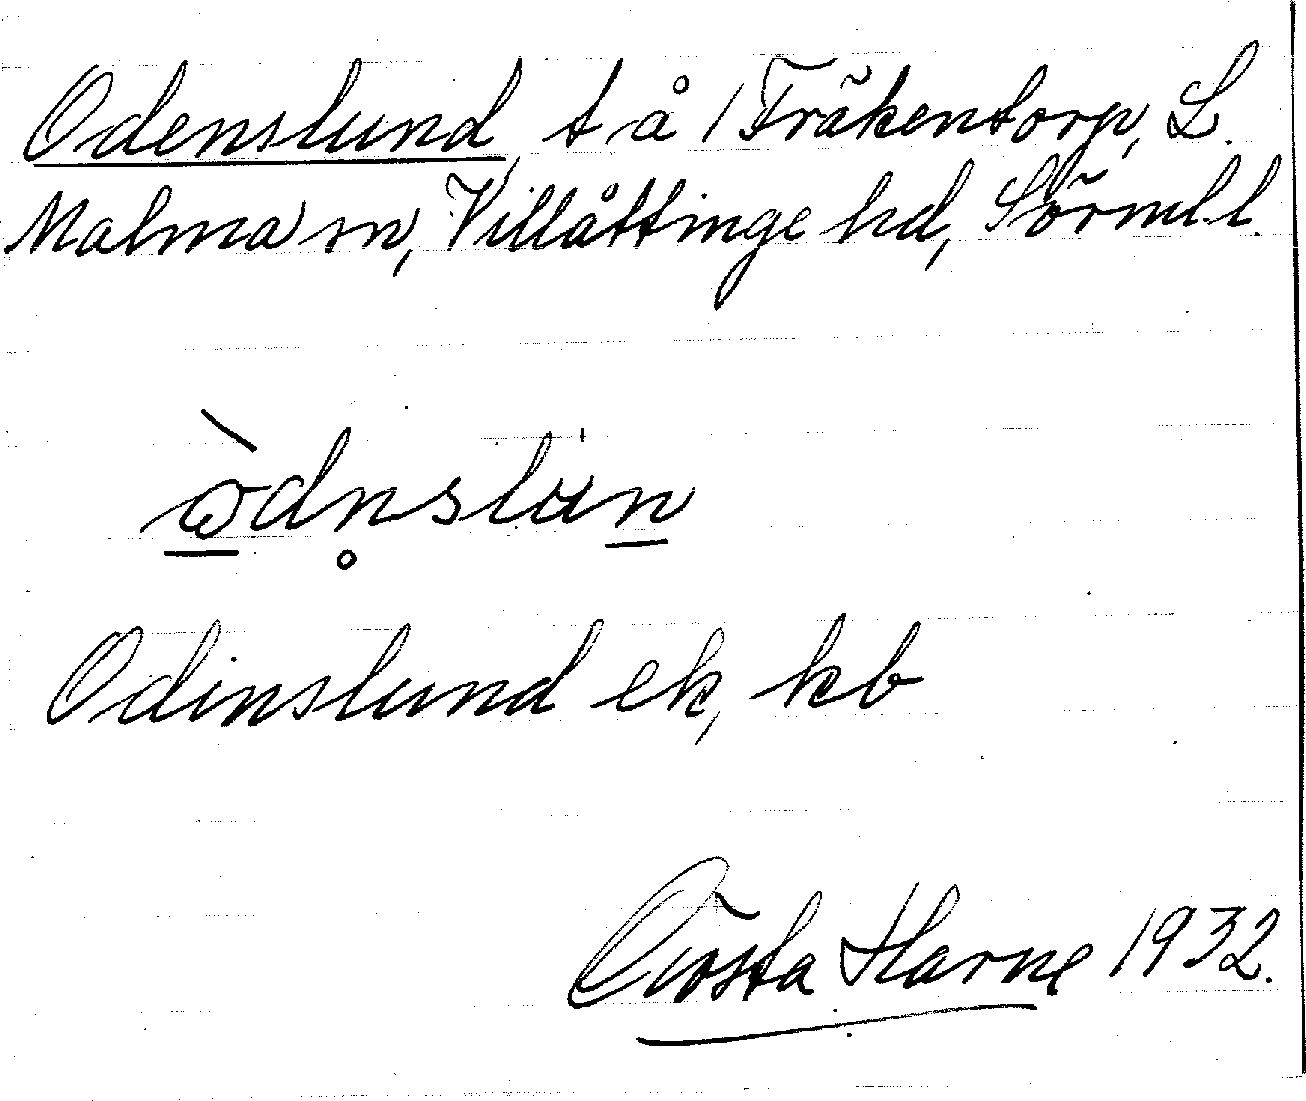 Odenslund t å 1 Fräkentorp, L.
Malma sn, Villåttinge hd, Sörml l.
ò̱dn̥slun̠
Odinslund ek, kb
Gösta Harne 1932.